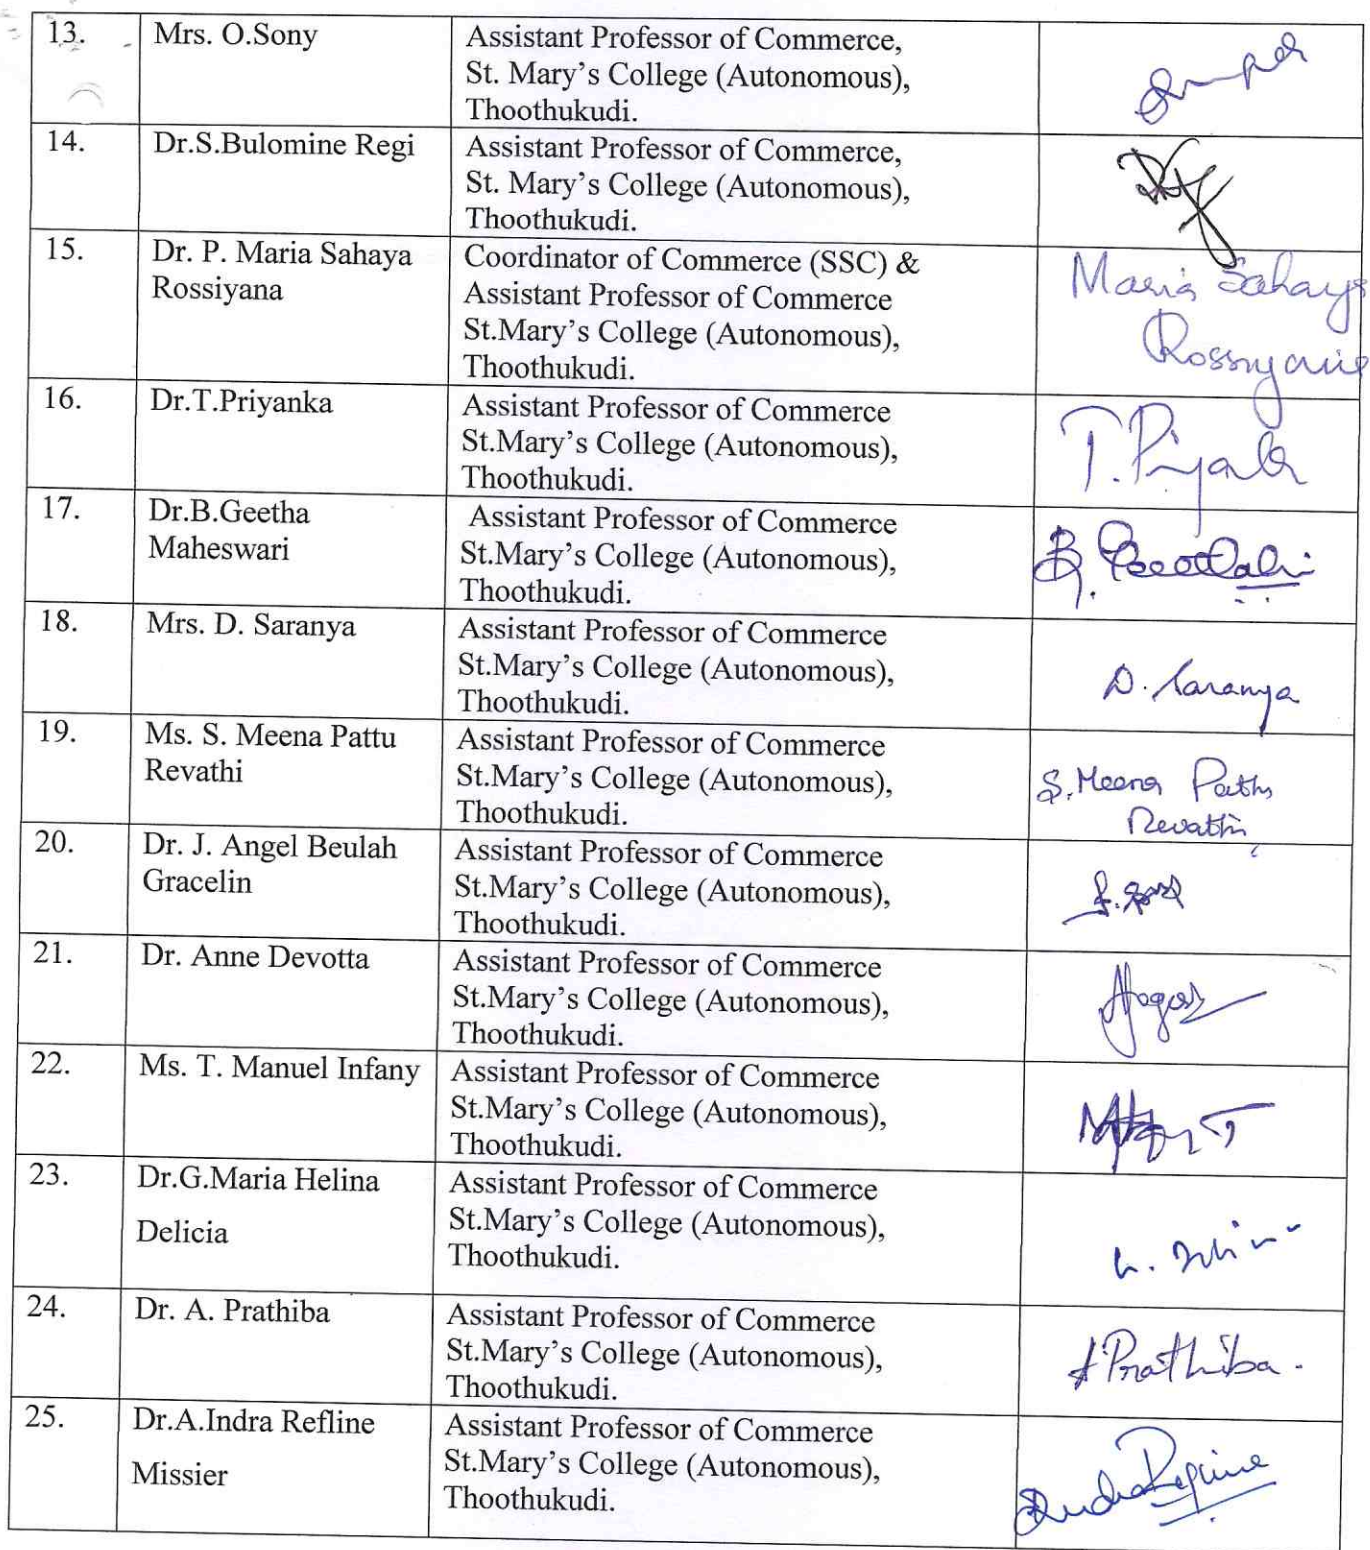 13.
Mrs. O.Sony
Assistant Professor of Commerce,
St. Mary's College (Autonomous),
Thoothukudi.
14.
Dr.S.Bulomine Regi
Assistant Professor of Commerce,
St. Mary's College (Autonomous),
Thoothukudi.
15.
Dr. P. Maria Sahaya
Rossiyana
Coordinator of Commerce (SSC) &
Assistant Professor of Commerce
St.Mary's College (Autonomous),
Thoothukudi.
Maria Sahaya
16.
Dr.T.Priyanka
Assistant Professor of Commerce
St.Mary's College (Autonomous),
Thoothukudi.
17.
Dr.B.Geetha
Maheswari
Assistant Professor of Commerce
St.Mary's College (Autonomous),
Thoothukudi.
18.
Mrs. D. Saranya
Assistant Professor of Commerce
St.Mary's College (Autonomous),
Thoothukudi.
D. Saranya
19.
Ms. S. Meena Pattu
Revathi
Assistant Professor of Commerce
St.Mary's College (Autonomous),
Thoothukudi.
S. Meena Pattu
Revathi
20.
Dr. J. Angel Beulah
Gracelin
Assistant Professor of Commerce
St.Mary's College (Autonomous),
Thoothukudi.
21.
Dr. Anne Devotta
Assistant Professor of Commerce
St.Mary's College (Autonomous),
Thoothukudi.
22.
Ms. T. Manuel Infany
Assistant Professor of Commerce
St.Mary's College (Autonomous),
Thoothukudi.
23.
Dr.G.Maria Helina
Delicia
Assistant Professor of Commerce
St.Mary's College (Autonomous),
Thoothukudi.
24.
Dr. A. Prathiba
Assistant Professor of Commerce
St.Mary's College (Autonomous),
Thoothukudi.
A Prathiba.
25.
Dr.A.Indra Refline
Missier
Assistant Professor of Commerce
St.Mary's College (Autonomous),
Thoothukudi.